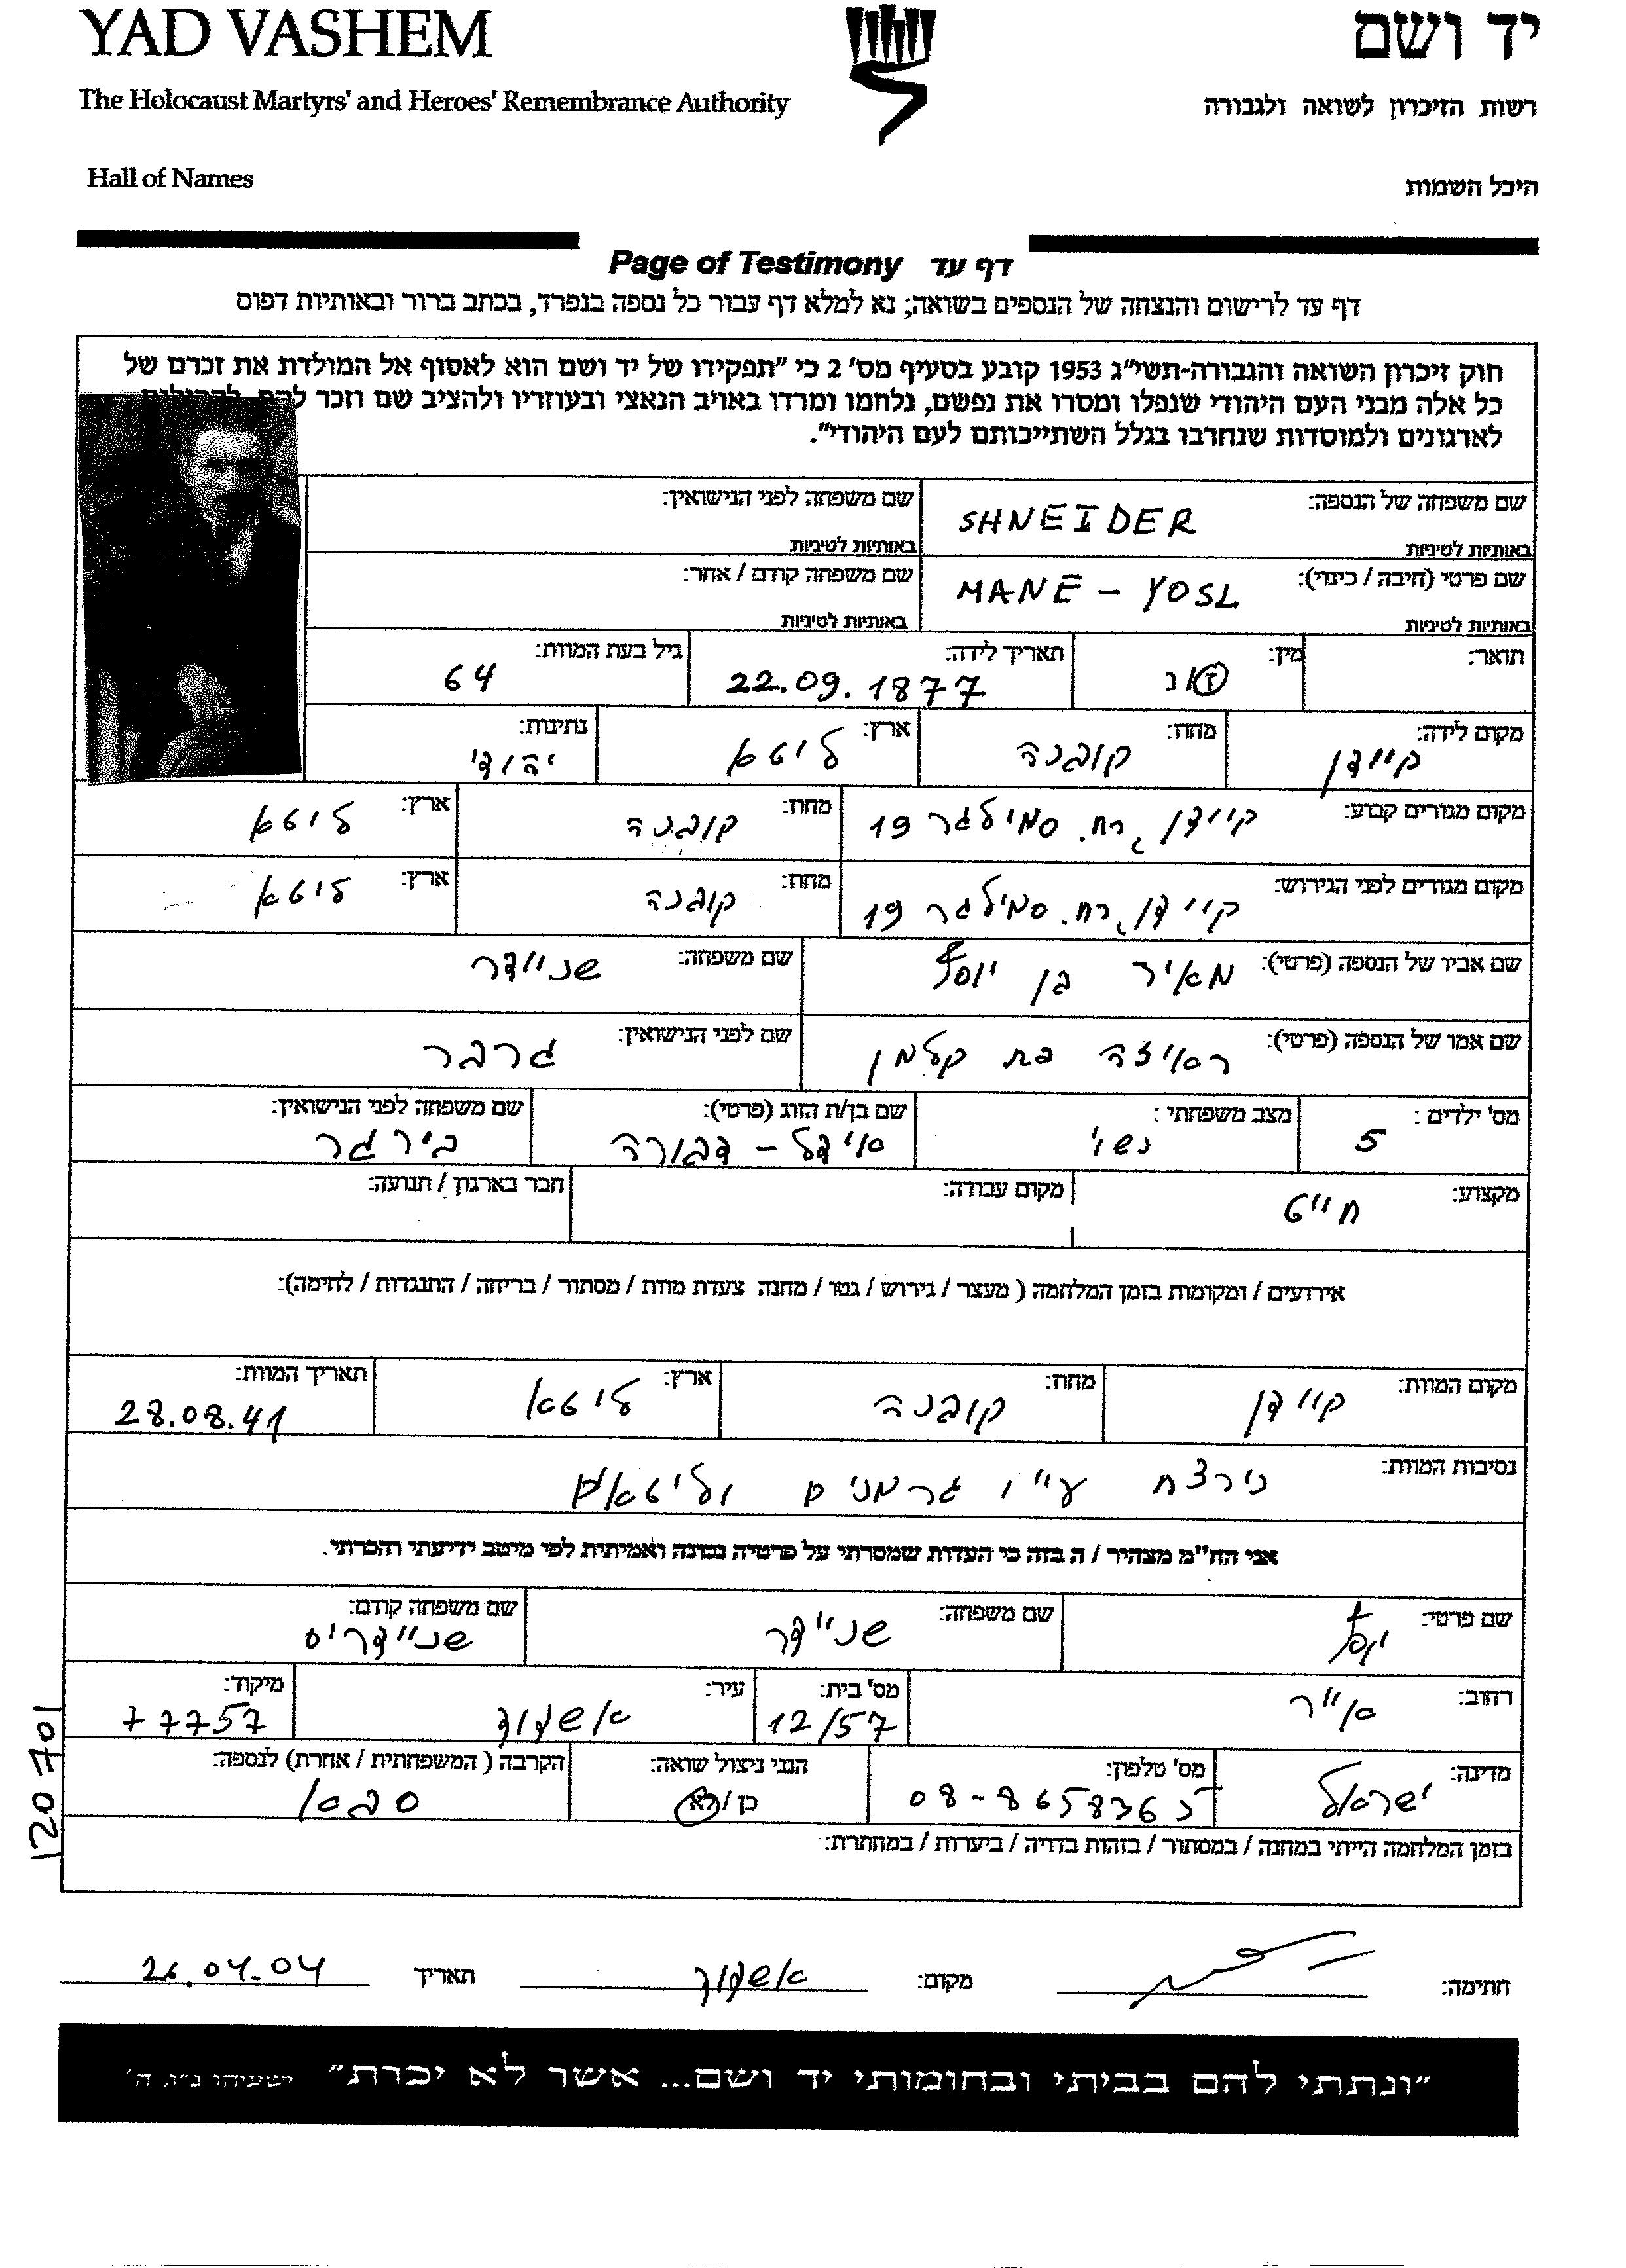 YAD VASHEM יד ושם
The Holocaust Martyrs' and Heroes' Remembrance Authority רשות הזיכרון לשואה ולגבורה
Hall of Names היכל השמות
Page of Testimony דף עד
דף עד לרישום והנצחה של הנספים בשואה; נא למלא דף עבור כל נספה בנפרד, בכתב ברור ובאותיות דפוס
חוק זיכרון השואה והגבורה-תשי"ג 1953 קובע בסעיף מס' 2 כי "תפקידו של יד ושם הוא לאסוף אל המולדת את זכרם של
כל אלה מבני העם היהודי שנפלו ומסרו את נפשם, נלחמו ומרדו באויב הנאצי ובעוזריו ולהציב שם וזכר להם, לקהילות
לארגונים ולמוסדות שנחרבו בגלל השתייכותם לעם היהודי".
שם משפחה של הנספה: SHNEIDER שם משפחה לפני הנישואין:
באותיות לטיניות באותיות לטיניות
שם פרטי (חיבה / כינוי): MANE - YOSL שם משפחה קודם / אחר:
באותיות לטיניות באותיות לטיניות
תואר: מין: ז/נ תאריך לידה: 22.09.1877 גיל בעת המוות: 64
מקום לידה: קיידן מחוז: קובנה ארץ: ליטא נתינות: יהודי
מקום מגורים קבוע: קיידן, רח. סמילגר 19 מחוז: קובנה ארץ: ליטא
מקום מגורים לפני הגירוש: קיידן, רח. סמילגר 19 מחוז: קובנה ארץ: ליטא
שם אביו של הנספה (פרטי): מאיר בן יוסף שם משפחה: שניידר
שם אמו של הנספה (פרטי): ראיזה בת קלמן שם לפני הנישואין: גרבר
מס' ילדים: 5 מצב משפחתי: נשוי שם בן/ת הזוג (פרטי): אידל - דבורה שם משפחה לפני הנישואין: בירגר
מקצוע: חייט מקום עבודה: חבר בארגון / תנועה:
אירועים / ומקומות בזמן המלחמה ( מעצר / גירוש / גטו / מחנה צעדת מוות / מסתור / בריחה / התנגדות / לחימה):
מקום המוות: קיידן מחוז: קובנה ארץ: ליטא תאריך המוות: 28.08.41
נסיבות המוות: נירצח ע"י גרמנים וליטאים
אני הח"מ מצהיר / ה בזה כי העדות שמסרתי על פרטיה נכונה ואמיתית לפי מיטב ידיעתי והכרתי.
שם פרטי: יוסף שם משפחה: שניידר שם משפחה קודם: שניידריס
רחוב: אייר מס' בית: 12/57 עיר: אשדוד מיקוד: 77757
מדינה: ישראל מס' טלפון: 08-8658365 הנני ניצול שואה: כן / לא הקרבה ( המשפחתית / אחרת) לנספה: סבא
בזמן המלחמה הייתי במחנה / במסתור / בזהות בדויה / ביערות / במחתרת:
120701
חתימה: מקום: אשדוד תאריך 26.04.04
"ונתתי להם בביתי ובחומותי יד ושם... אשר לא יכרת" ישעיהו נ"ו, ה'